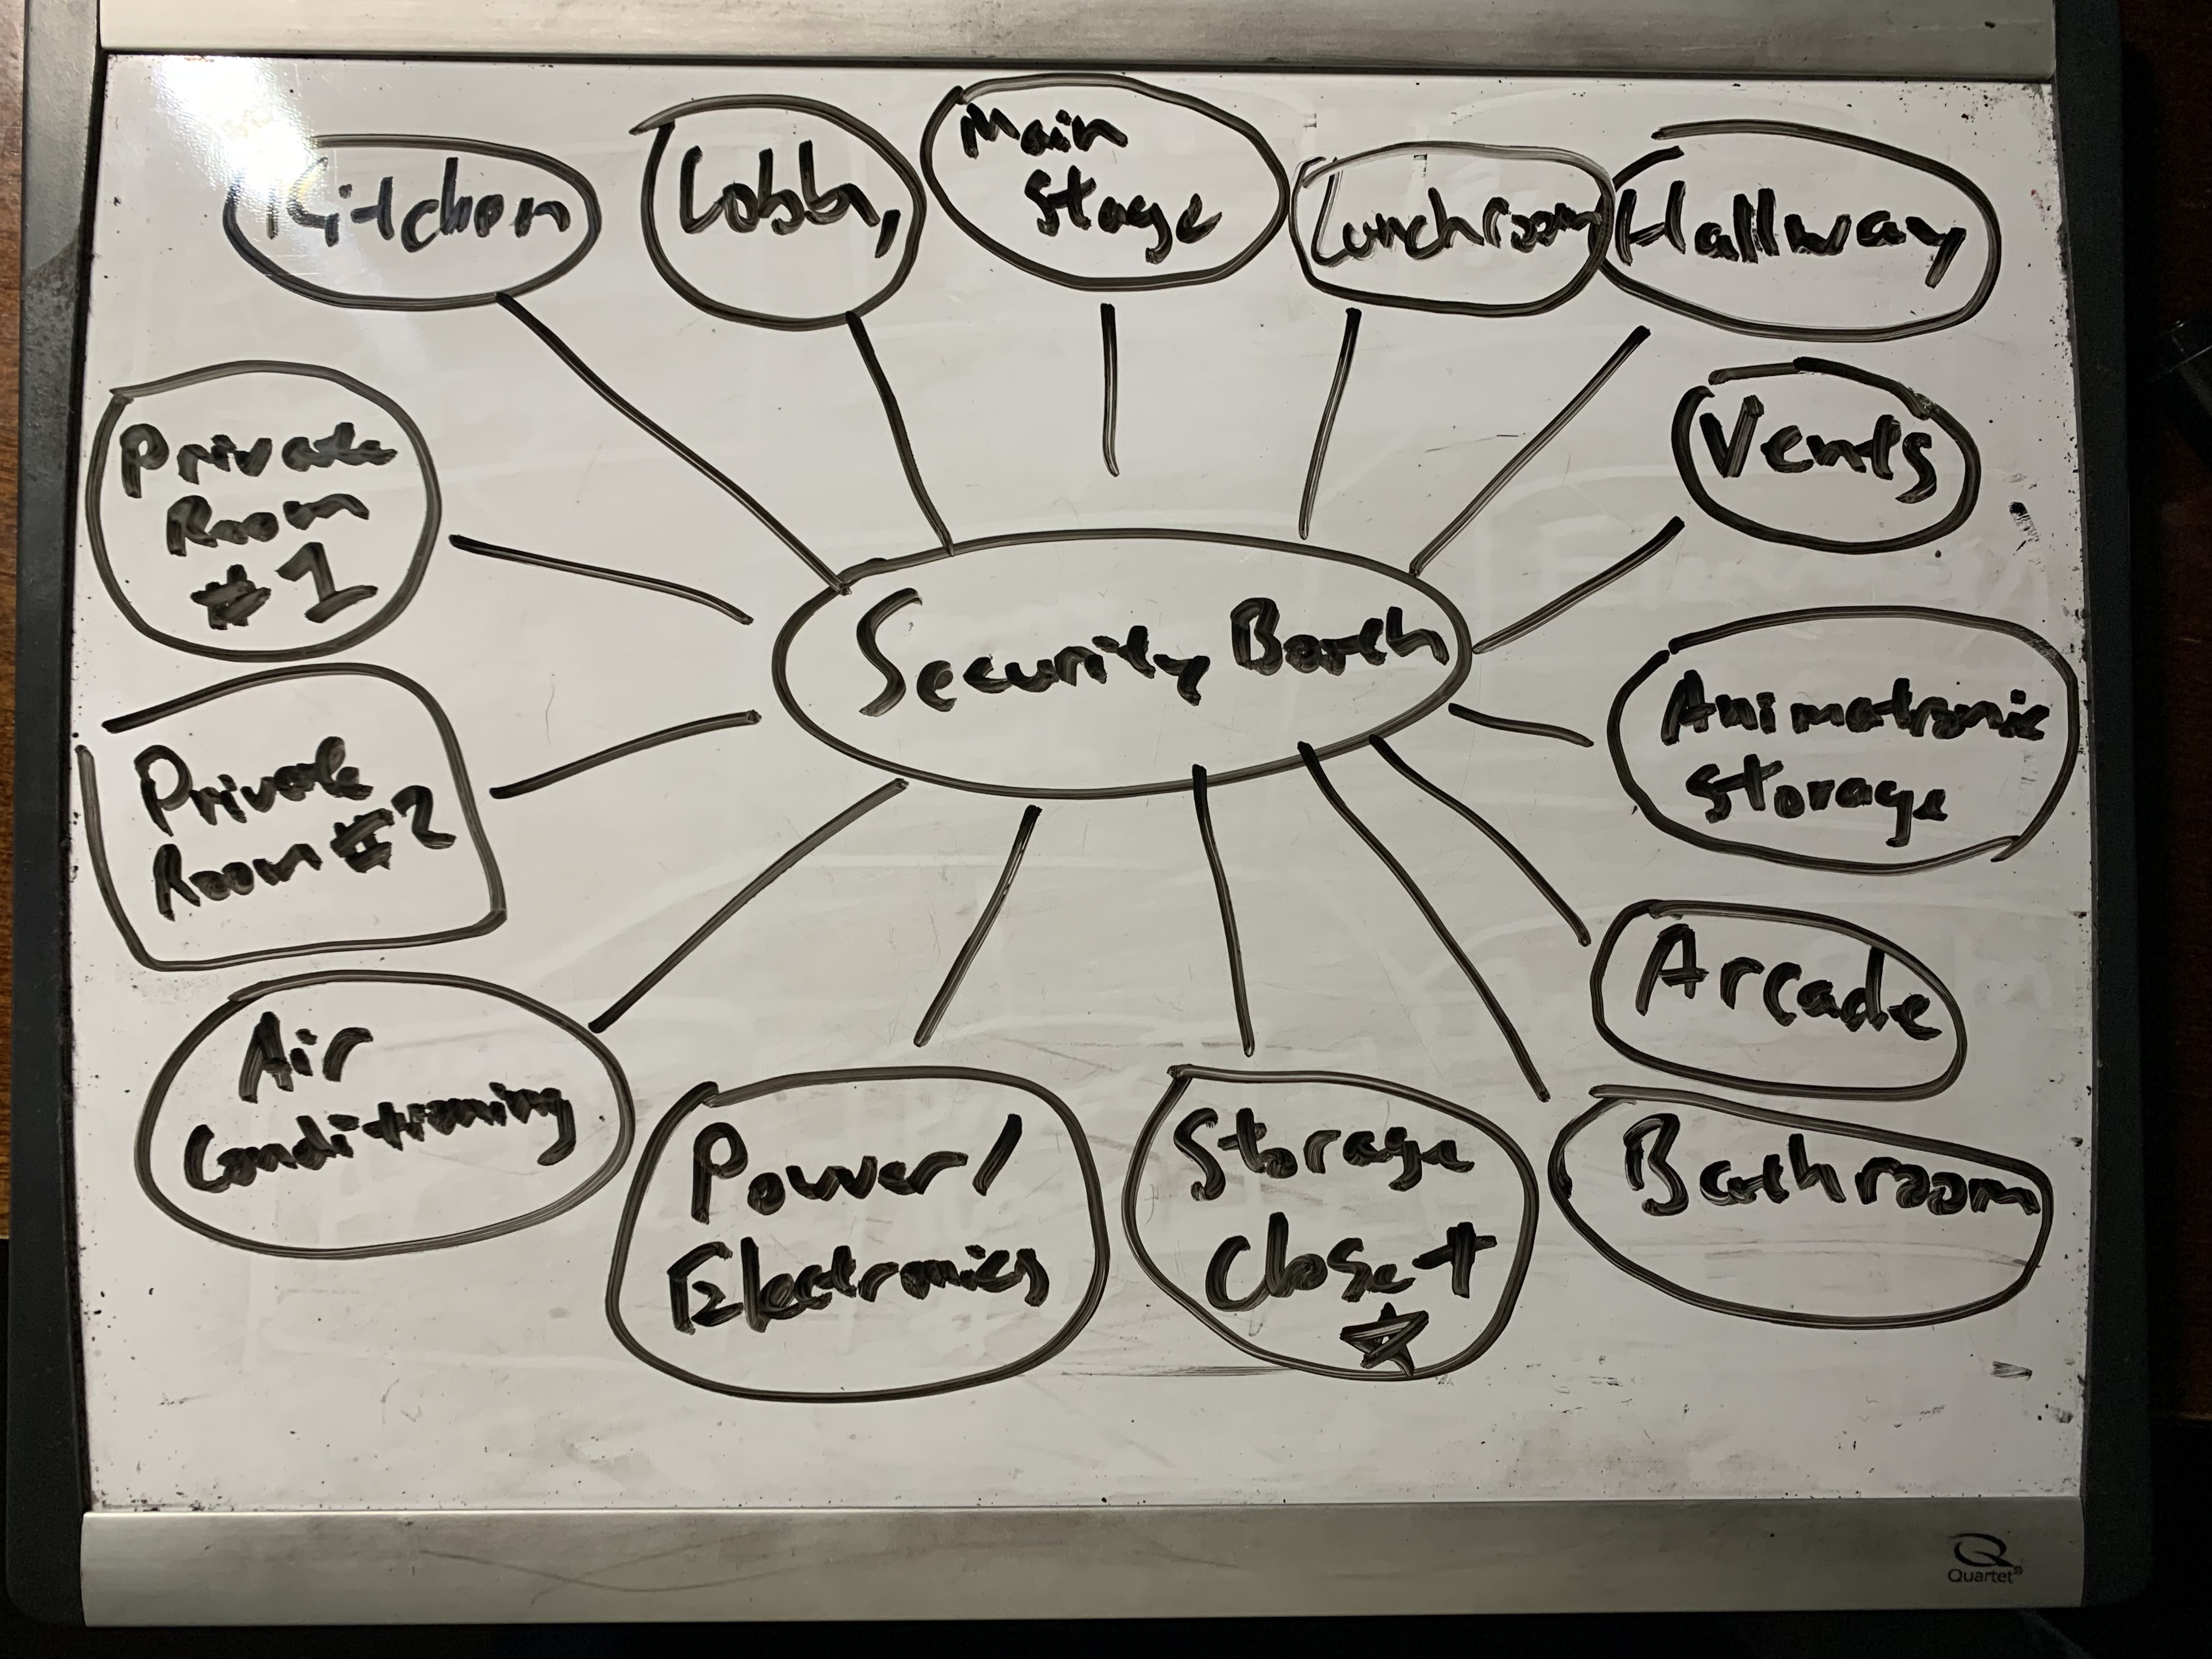 Kitchen
Lobby
Main
Stage
Lunchroom
Hallway
Vents
Private
Room
#1
Security Booth
Animatronic
Storage
Private
Room #2
Arcade
Air
Conditioning
Power/
Electronics
Storage
Closet
Bathroom
Quartet®